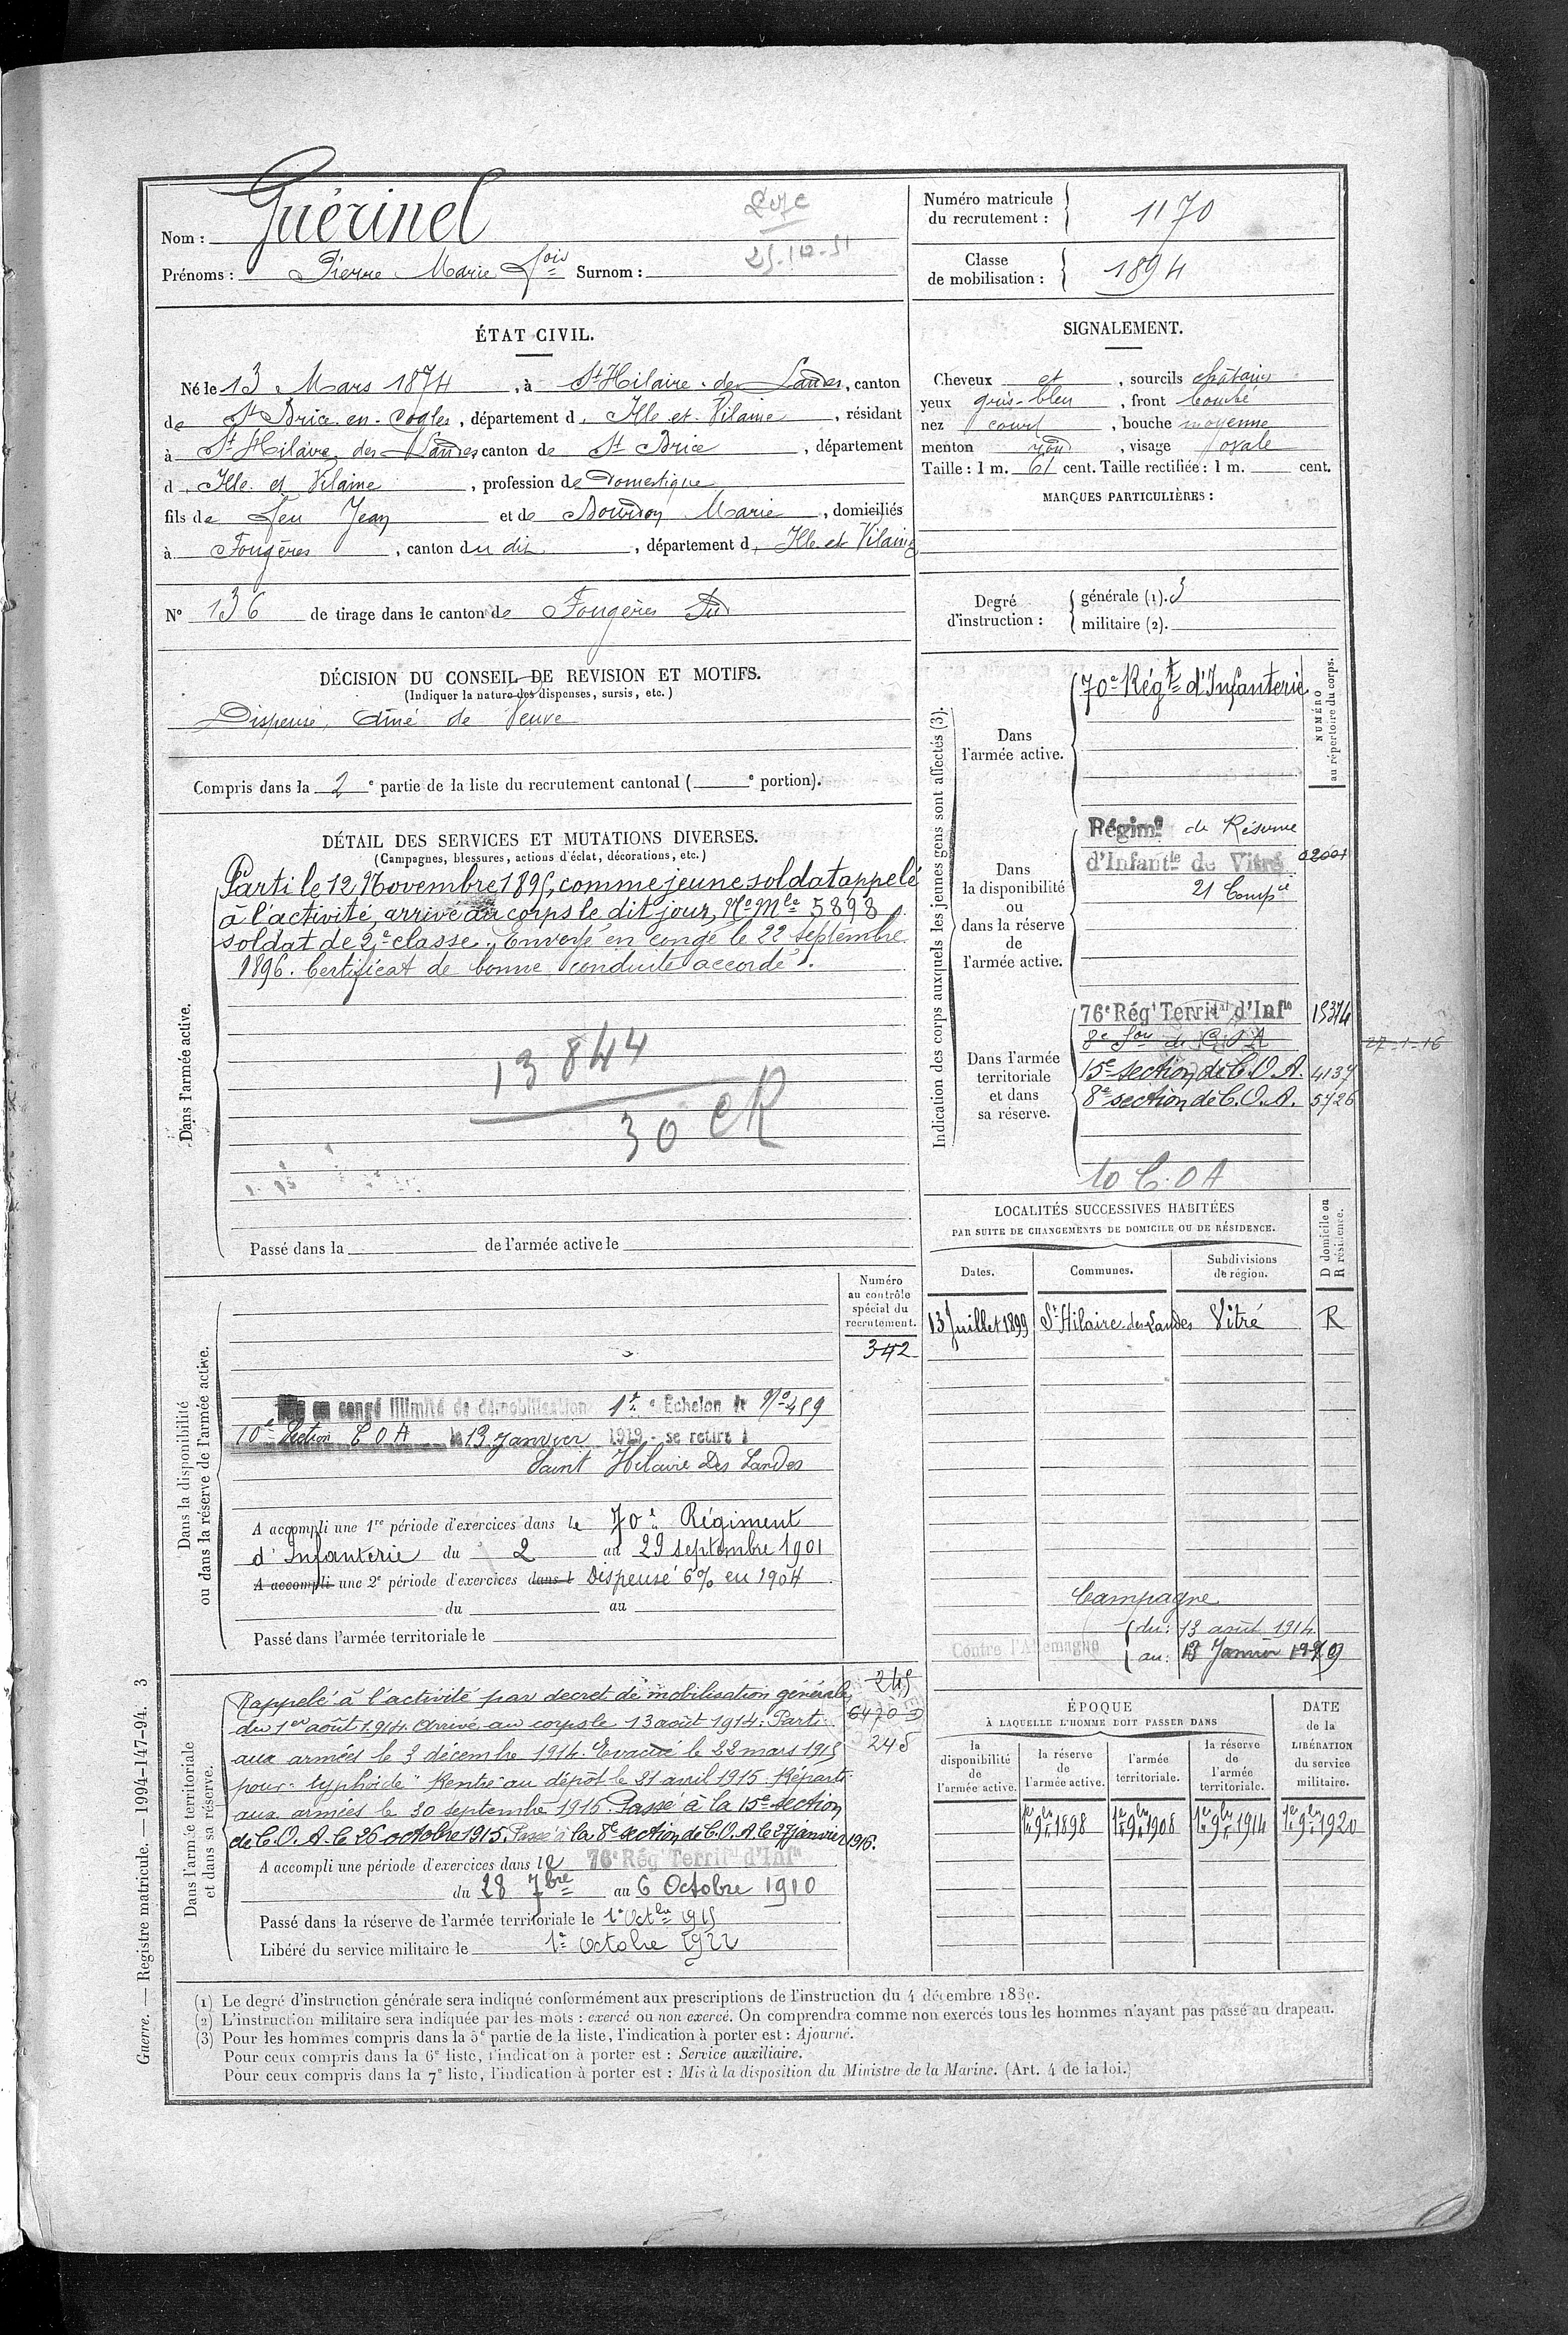 Nom : Guérinel
Prénoms : Pierre Marie Fois Surnom :
25-10-51
Numéro matricule du recrutement : 1170
Classe de mobilisation : 1894
ÉTAT CIVIL.
Né le 13 Mars 1874, à St Hilaire des Landes, canton
de St Brice en Cogles, département d Ille et Vilaine, résidant
à St Hilaire des Landes canton de St Brice, département
d Ille et Vilaine, profession de Domestique
fils de feu Jean et de Bourdon Marie, domiciliés
à Fougères, canton du dit, département d Ille et Vilaine
N° 136 de tirage dans le canton de Fougères Sud
SIGNALEMENT.
Cheveux et, sourcils châtains
yeux gris-bleu, front
nez court, bouche moyenne
menton rond, visage ovale
Taille : 1 m. 61 cent. Taille rectifiée : 1 m. cent.
MARQUES PARTICULIÈRES :
Degré d'instruction : générale (1). 3
militaire (2).
DÉCISION DU CONSEIL DE REVISION ET MOTIFS.
(Indiquer la nature des dispenses, sursis, etc.)
Dispensé, aîné de Veuve
Compris dans la 2e partie de la liste du recrutement cantonal ( e portion).
DÉTAIL DES SERVICES ET MUTATIONS DIVERSES.
(Campagnes, blessures, actions d'éclat, décorations, etc.)
Dans l'armée active.
Parti le 12 Novembre 1895, comme jeune soldat appelé
à l'activité, arrivé au corps le dit jour, No Mle 5898
soldat de 2e classe. Envoyé en congé le 22 Septembre
1896. Certificat de bonne conduite accordé.
13844
30 CR
Passé dans la de l'armée active le
Indication des corps auxquels les jeunes gens sont affectés (3).
NUMÉRO au répertoire du corps.
Dans l'armée active.
70e Régt d'Infanterie
Dans la disponibilité ou dans la réserve de l'armée active.
Régimt de Réserve
d'Infantie de Vitré 02001
21 Compie
Dans l'armée territoriale et dans sa réserve.
76e Régt Territal d'Infie 15374
8e Son de C O A 27-1-16
15e section de C.O.A. 4137
8e section de C.O.A. 5726
10 C.O A
LOCALITÉS SUCCESSIVES HABITÉES
PAR SUITE DE CHANGEMENTS DE DOMICILE OU DE RÉSIDENCE.
Dates. Communes. Subdivisions de région. D domicile ou R résidence.
13 Juillet 1899 St Hilaire des Landes Vitré R
Campagne
Contre l'Allemagne du : 13 août 1914
au : 13 Janvier 1919
Dans la disponibilité ou dans la réserve de l'armée active.
Numéro au contrôle spécial du recrutement.
342
Mis en congé illimité de démobilisation 1er Echelon le No 459
10e Section C O A le 13 Janvier 1919 - se retire à
Saint Hilaire Des Landes
A accompli une 1re période d'exercices dans le 70e Régiment
d'Infanterie du 2 au 29 septembre 1901
A accompli une 2e période d'exercices dans l Dispensé 6% en 1904
du au
Passé dans l'armée territoriale le
Dans l'armée territoriale et dans sa réserve.
245
6470
245
Rappelé à l'activité par decret de mobilisation générale
du 1er août 1914. Arrivé au corps le 13 août 1914. Parti
aux armées le 3 décembre 1914. Evacué le 22 mars 1915
pour "typhoïde" Rentré au dépôt le 21 avril 1915. Réparti
aux armées le 30 septembre 1915. Passé à la 15e section
de C.O.A. le 26 octobre 1915. Passé à la 8e section de C.O.A. le 27 janvier 1916.
A accompli une période d'exercices dans le 76e Régt Territal d'Infie
du 28 7bre au 6 Octobre 1910
Passé dans la réserve de l'armée territoriale le 1er Octbre 1915
Libéré du service militaire le 1er Octobre 1922
ÉPOQUE
À LAQUELLE L'HOMME DOIT PASSER DANS
la disponibilité de l'armée active.
la réserve de l'armée active.
l'armée territoriale.
la réserve de l'armée territoriale.
DATE de la LIBÉRATION du service militaire.
1er 9bre 1898 1er 9bre 1908 1er 9bre 1914 1er 9bre 1920
(1) Le degré d'instruction générale sera indiqué conformément aux prescriptions de l'instruction du 4 décembre 1889.
(2) L'instruction militaire sera indiquée par les mots : exercé ou non exercé. On comprendra comme non exercés tous les hommes n'ayant pas passé au drapeau.
(3) Pour les hommes compris dans la 5e partie de la liste, l'indication à porter est : Ajourné.
Pour ceux compris dans la 6e liste, l'indication à porter est : Service auxiliaire.
Pour ceux compris dans la 7e liste, l'indication à porter est : Mis à la disposition du Ministre de la Marine. (Art. 4 de la loi.)
Guerre. — Registre matricule. — 1994-147-94. 3